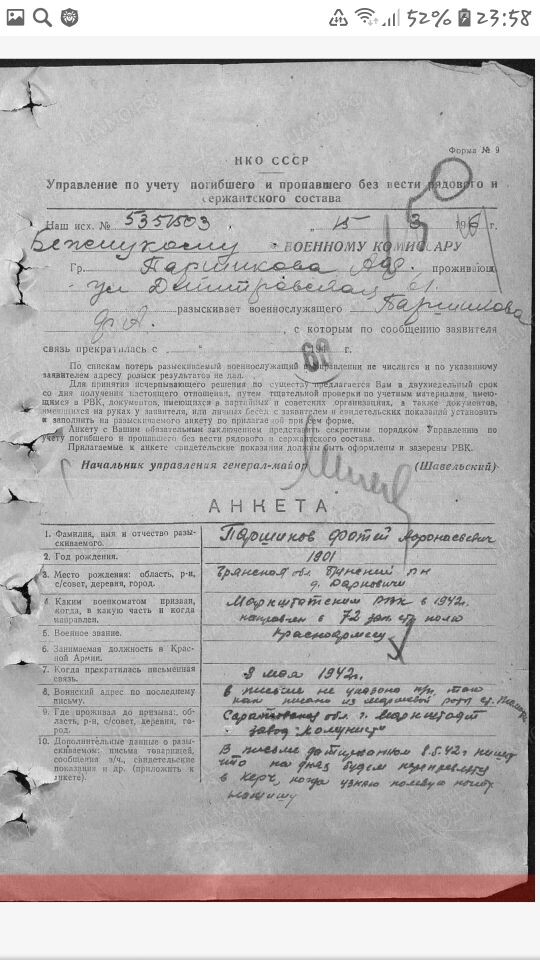 52% 23:58
Форма № 9
НКО СССР
Управление по учету погибшего и пропавшего без вести рядового и
сержантского состава
Наш исх. № 5351503 „ 15 " 3 194 г.
Бежицкому ВОЕННОМУ КОМИССАРУ
Гр. Паршикова проживающ
ул Дмитровская
разыскивает военнослужащего Паршикова
Ф.А. , с которым по сообщению заявителя
связь прекратилась с „ " 194 г.
По спискам потерь разыскиваемый военнослужащий в управлении не числится и по указанному
заявителем адресу розыск результатов не дал.
Для принятия исчерпывающего решения по существу предлагается Вам в двухнедельный срок
со дня получения настоящего отношения, путем тщательной проверки по учетным материалам, имею-
щимся в РВК, документов, имеющихся в партийных и советских организациях, а также документов,
имеющихся на руках у заявителя, или личных бесед с заявителем и свидетельских показаний установить
и заполнить на разыскиваемого анкету по прилагаемой при сем форме.
Анкету с Вашим обязательным заключением представить секретным порядком Управлению по
учету погибшего и пропавшего без вести рядового и сержантского состава.
Прилагаемые к анкете свидетельские показания должны быть оформлены и заверены РВК.
Начальник управления генерал-майор (Шавельский)
АНКЕТА
1. Фамилия, имя и отчество разы-
скиваемого. Паршиков Фотей
2. Год рождения. 1901
3. Место рождения: область, р-н,
с/совет, деревня, город. Брянская обл. Брянский р-н
д. Дарковичи
4. Каким военкоматом призван,
когда, в какую часть и когда
направлен. Марксштатским РВК в 1942г.
направлен в 72 зап. стр полк
5. Военное звание. Красноармеец
6. Занимаемая должность в Крас-
ной Армии.
7. Когда прекратилась письменная
связь. 9 мая 1942г.
8. Воинский адрес по последнему
письму. в письме не указано п/п, так
как писано из маршевой роты ст.
9. Где проживал до призыва: об-
ласть, р-н, с/совет, деревня, го-
род. Саратовская обл. г. Марксштадт
завод „Комунист"
10. Дополнительные данные о разы-
скиваемом: письма товарищей,
сообщения в/ч., свидетельские
показания и др. (приложить к
анкете). В письме датированном 8.5.42г пишет
что на днях будем направлять
в Керч, когда узнаю полевую почту
напишу